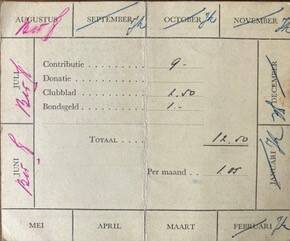 AUGUSTUS SEPTEMBER OCTOBER NOVEMBER
JULI
JUNI
Contributie . . . . . . . . . 9.-
Donatie . . . . . . . . . . .
Clubblad . . . . . . . . . . 2.50
Bondsgeld . . . . . . . . . 1.-
TOTAAL . . . . . . . 12.50
Per maand . . . 1.05
DECEMBER
JANUARI
MEI APRIL MAART FEBRUARI